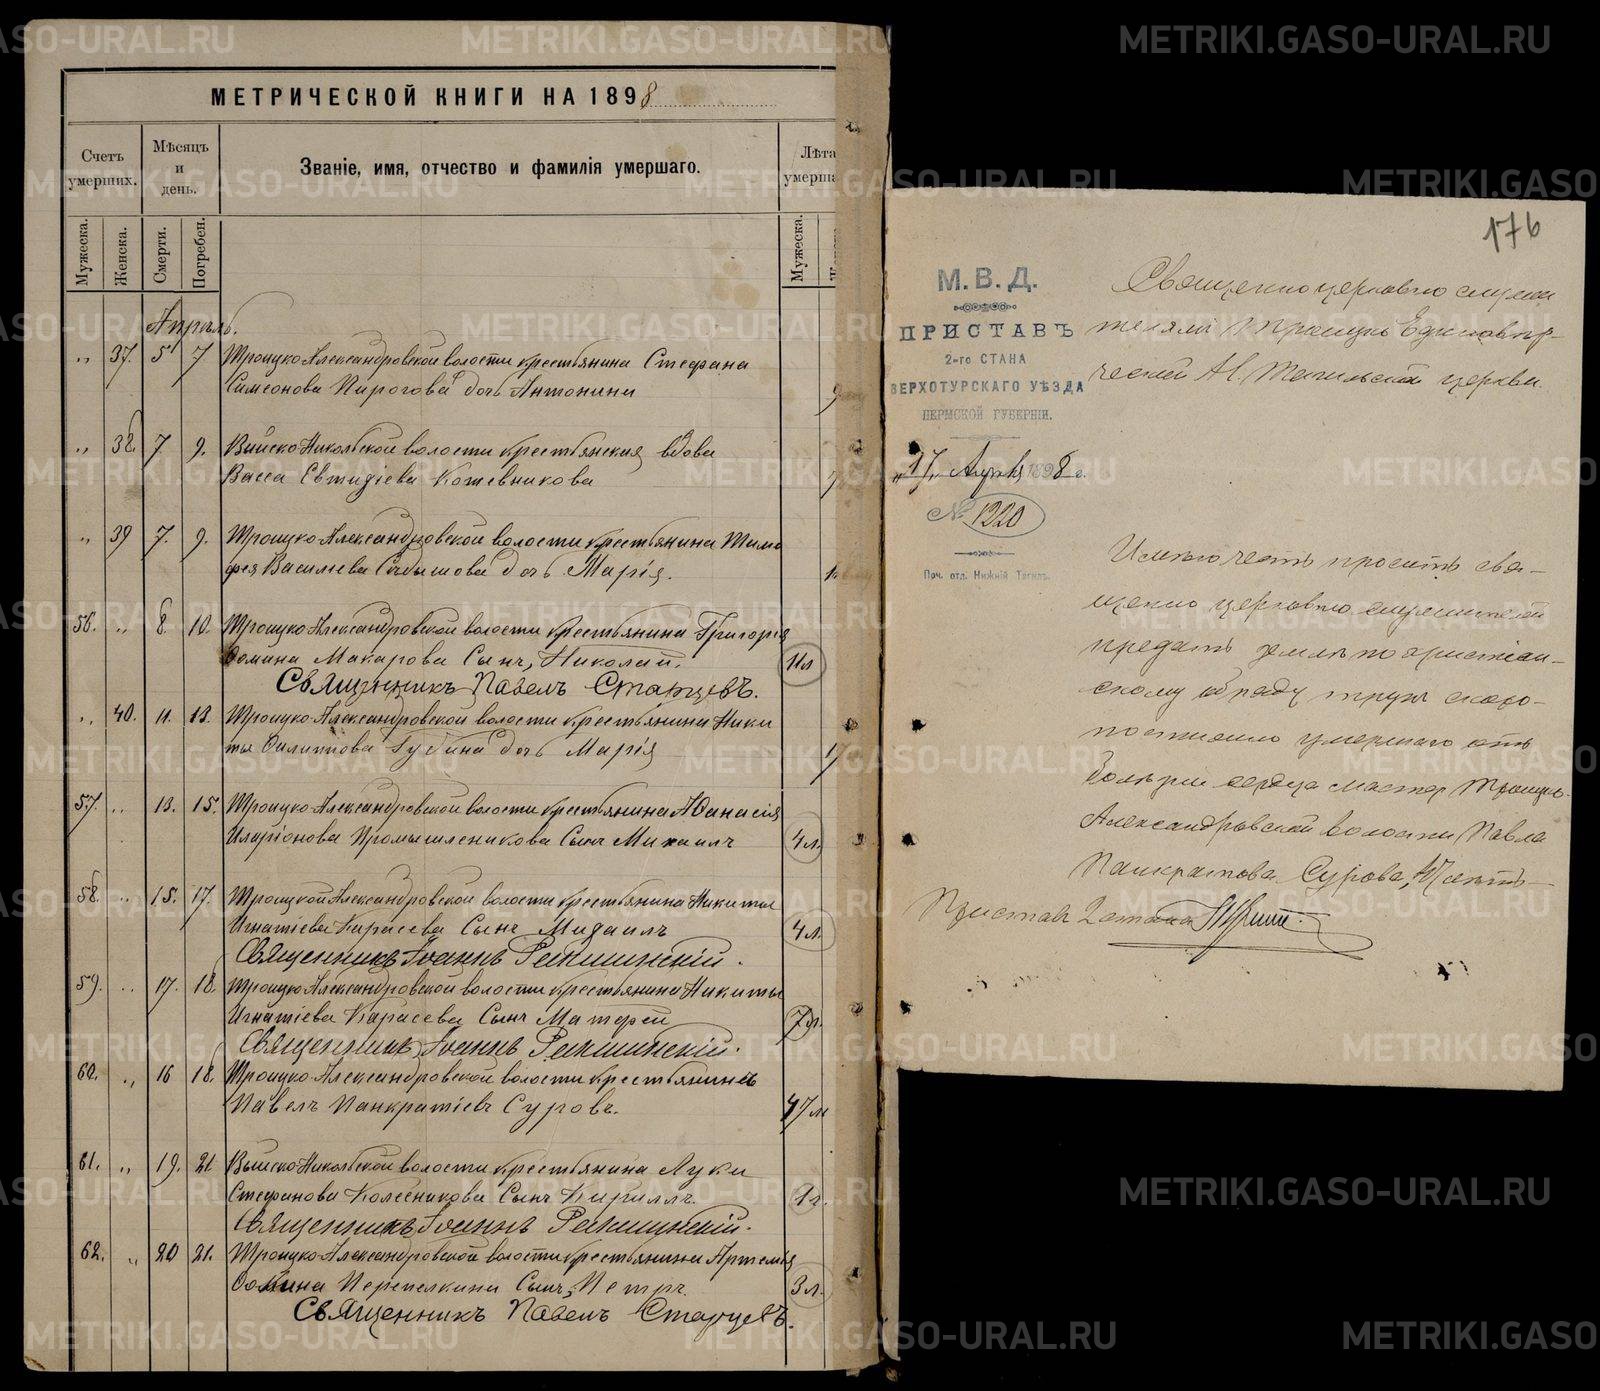 МЕТРИЧЕСКОЙ КНИГИ НА 1898
Счетъ умершихъ.
Мѣсяцъ и день.
Званіе, имя, отчество и фамилія умершаго.
Лѣта умерша
Мужеска.
Женска.
Смерти.
Погребен.
Мужеска.
Апрѣль.
„ 37. 5 7 Троицко-Александровской волости крестьянина Стефана
Симеонова Пирогова дочь Антонина
„ 38. 7 9. Выйско-Никольской волости крестьянская вдова
Васса Евтидіева Кожевникова
„ 39 7. 9. Троицко-Александровской волости крестьянина Тимо
фея Васильева дочь Марія.
56. „ 8. 10. Троицко-Александровской волости крестьянина Григорія
Ѳомина Макарова сынъ, Николай. 11 л
Священникъ Павелъ Старцевъ.
„ 40. 11. 13. Троицко-Александровской волости крестьянина Ники
ты Филиппова Губина дочь Марія
57. „ 13. 15. Троицко-Александровской волости крестьянина Аѳанасія
Иларіонова Промышленикова сынъ Михаилъ 4 л.
58. „ 15. 17. Троицкой Александровской волости крестьянина Никиты
Игнатіева Карасева сынъ Михаилъ 4 л.
Священникъ Іоаннъ
59. „ 17. 18. Троицко-Александровской волости крестьянина Никиты
Игнатіева Карасева сынъ Матфей 7 л.
Священникъ Іоаннъ
60. „ 16 18. Троицко-Александровской волости крестьянинъ
Павелъ Панкратіевъ Суровъ. 47 л
61. „ 19. 21 Выйско-Никольской волости крестьянина Луки
Стефанова Колесникова сынъ Кириллъ. 1 г.
Священникъ Іоаннъ
62. „ 20 21. Троицко-Александровской волости крестьянина Артемія
Ѳомина Перепелкина сынъ, Петръ. 3 л.
Священникъ Павелъ Старцевъ.
176
М. В. Д.
ПРИСТАВЪ
2-го СТАНА
ВЕРХОТУРСКАГО УѢЗДА
ПЕРМСКОЙ ГУБЕРНІИ.
„17„ Апрѣля 1898 г.
№ 1220
Поч. отд. Нижній Тагилъ.
Священно церковно служи
телямъ Троицкой Единовѣр-
ческой Н. Тагильской церкви.
Имѣю честь просить свя-
щенно церковно служителей
предать землѣ по христіан-
скому обряду трупъ скоро-
постижно умершаго отъ
болѣзни сердца мастер Троицко-
Александровской волости Павла
Панкратова Сурова,
Приставъ 2 стана
METRIKI.GASO-URAL.RU